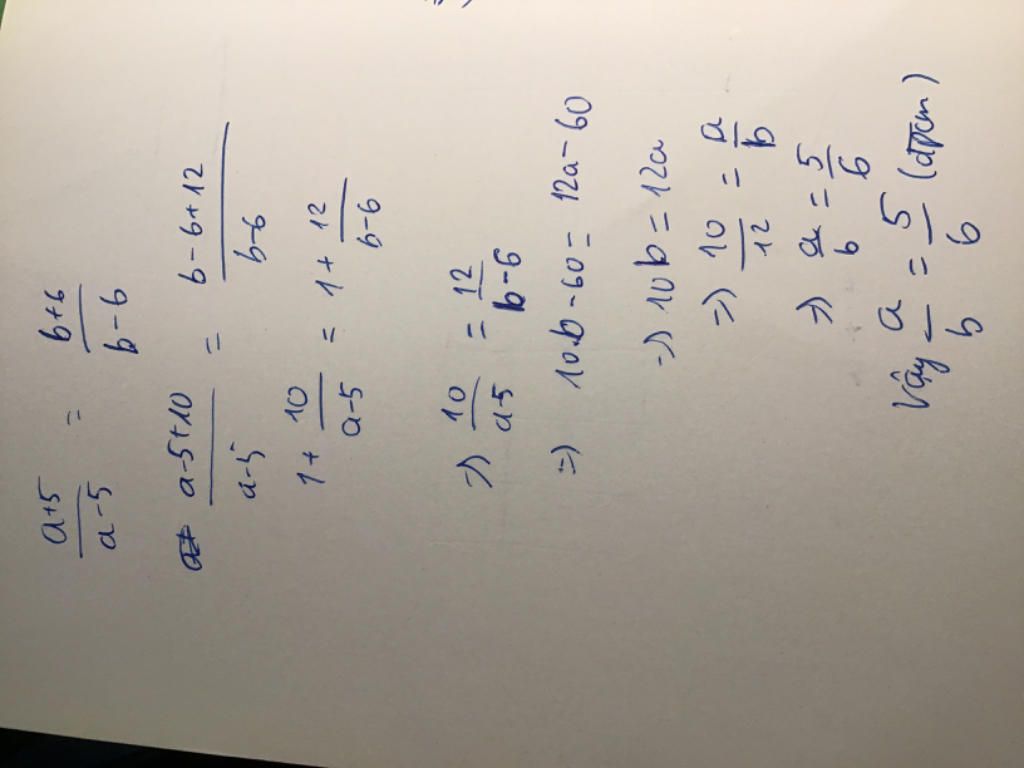 a+5/a-5 = b+6/b-6
a-5+10/a-5 = b-6+12/b-6
1+ 10/a-5 = 1+ 12/b-6
=> 10/a-5 = 12/b-6
=> 10.b-60 = 12a-60
=> 10b = 12a
=> 10/12 = a/b
=> a/b = 5/6
Vậy a/b = 5/6 (đpcm)